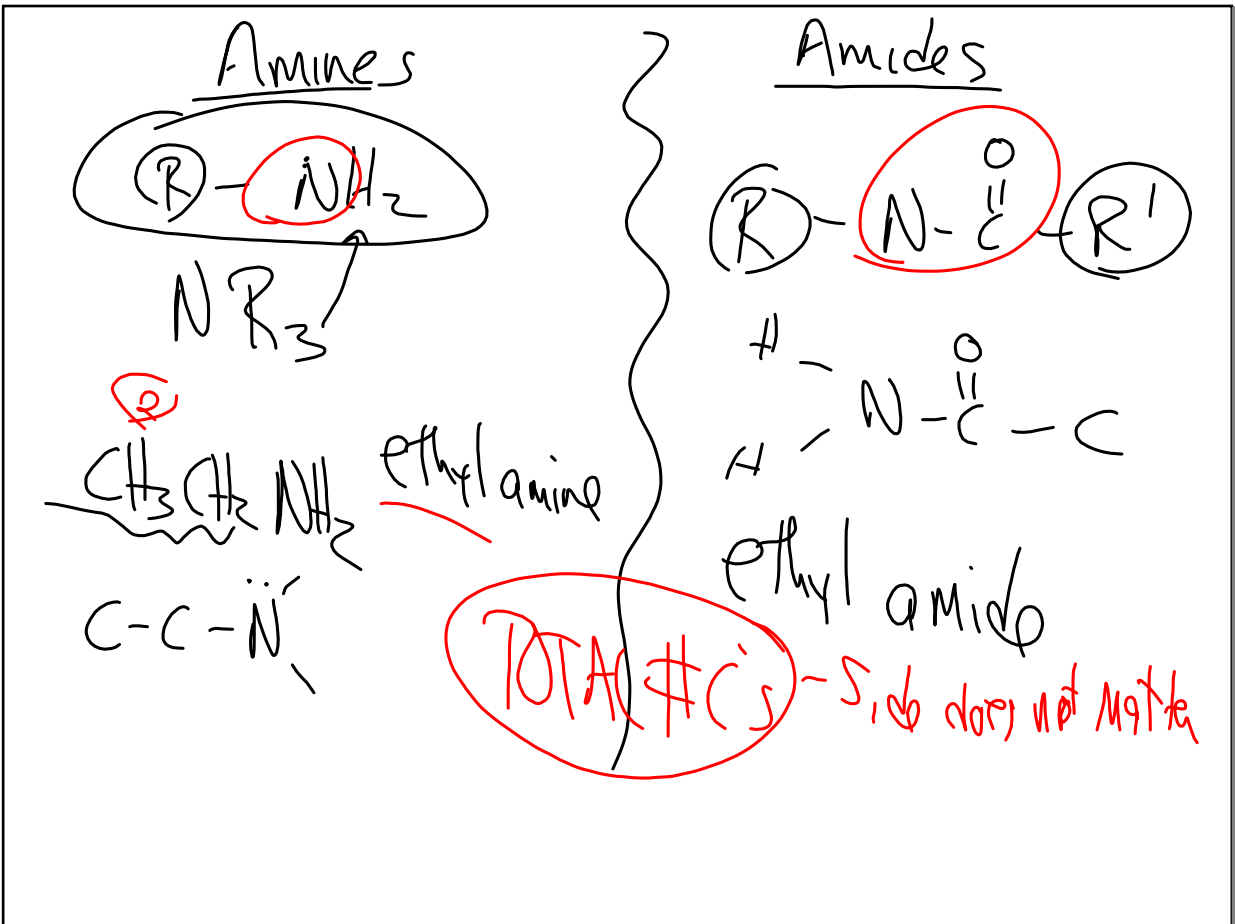 Amines
R - NH2
NR3
2
CH3CH2NH2 ethyl amine
C-C-N
Amides
O
R-N-C-R'
H O
N-C-C
H
ethyl amide
TOTAL # C's - Side does not matter